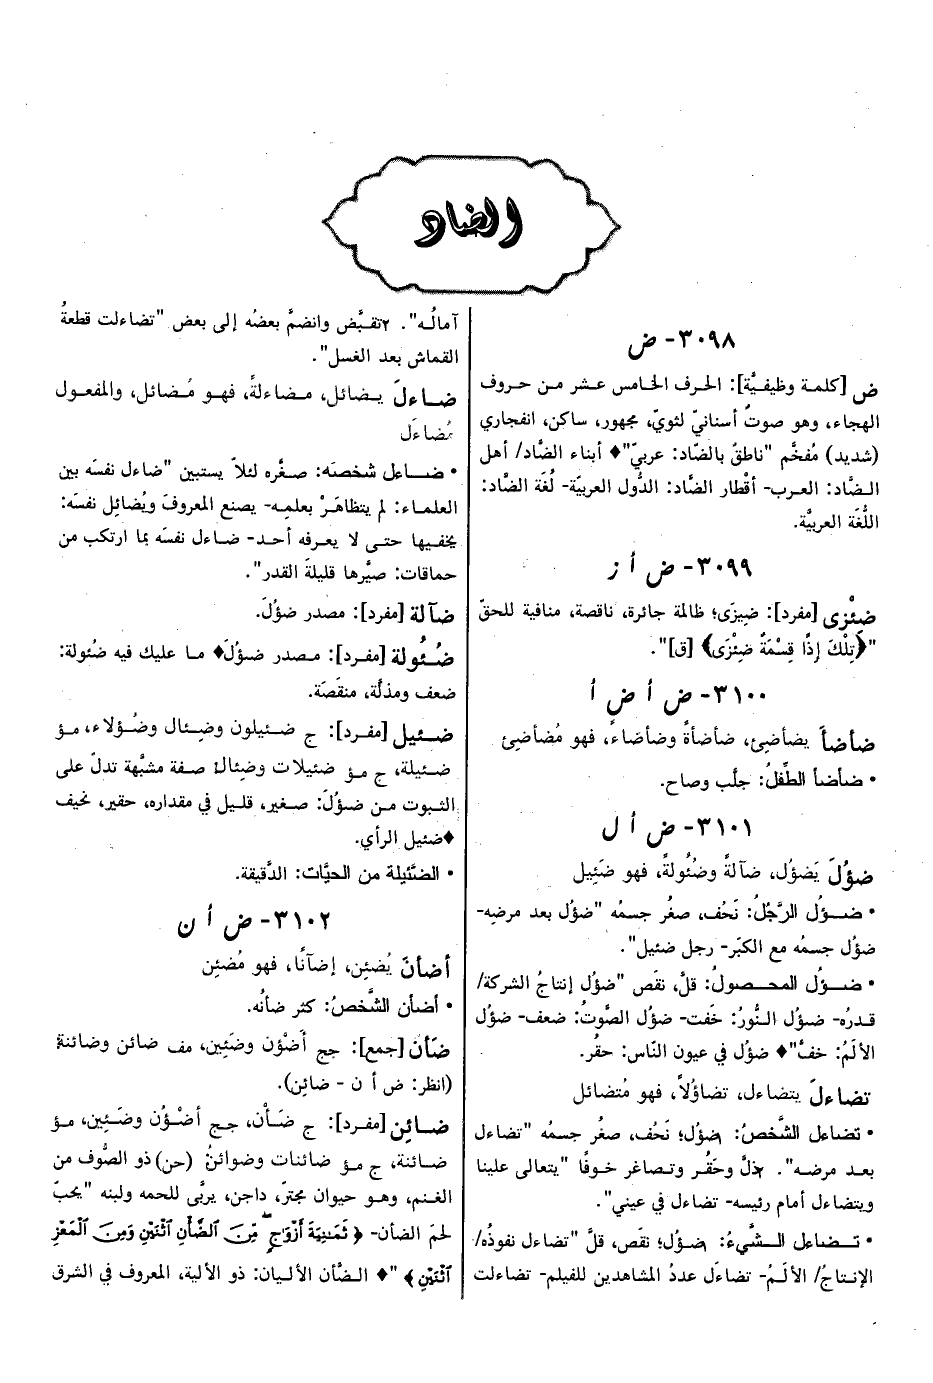 الضاد
٣٠٩٨- ض
ض [كلمة وظيفيَّة]: الحرف الخامس عشر من حروف
الهجاء، وهو صوتٌ أسنانيّ لثويّ، مجهور، ساكن، انفجاري
(شديد) مُفخَّم "ناطقٌ بالضّاد: عربيّ"♦ أبناء الضّاد/ أهل
الضّاد: العرب- أقْطار الضَّاد: الدُّول العربيّة- لُغَة الضّاد:
اللُّغَة العربيَّة.
٣٠٩٩- ض أ ز
ضِئْزى [مفرد]: ضِيزَى؛ ظالمة جائرة، ناقصة، منافية للحقّ
"﴿تِلْكَ إِذًا قِسْمَةٌ ضِئْزَى﴾ [ق]".
٣١٠٠- ض أ ض أ
ضأضأَ يضأضِئ، ضأضأةً وضأضاءً، فهو مُضأضِئ
• ضأضأ الطِّفلُ: جلَّب وصاح.
٣١٠١- ض أ ل
ضؤُلَ يَضؤُل، ضآلةً وضُئُولةً، فهو ضَئِيل
• ضؤُل الرَّجُلُ: نَحُف، صغُر جسمُه "ضؤُل بعد مرضِه-
ضؤُل جسمُه مع الكبَر- رجل ضئيل".
• ضؤُل المحصولُ: قلَّ، نقَص "ضؤُل إنتاجُ الشركة/
قدرُه- ضؤُل النُّورُ: خَفت- ضؤُل الصَّوتُ: ضعف- ضؤُل
الألَمُ: خفَّ"♦ ضؤُل في عيون النّاس: حقُر.
تضاءلَ يتضاءل، تضاؤُلاً، فهو مُتضائل
• تضاءل الشَّخصُ: ضؤُل؛ نَحُف، صغُر جسمُه "تضاءل
بعد مرضه". ٢ذلَّ وحَقُر وتصاغر خوفًا "يتعالى علينا
ويتضاءل أمام رئيسه- تضاءل في عيني".
• تضاءل الشَّيءُ: ١ضؤُل؛ نقَص، قلَّ "تضاءل نفوذُه/
الإنتاجُ/ الألَمُ- تضاءَل عددُ المشاهدين للفيلم- تضاءلت
آمالُه". ٢تقبَّض وانضمَّ بعضُه إلى بعض "تضاءلت قطعةُ
القماش بعد الغسل".
ضاءلَ يضائل، مضاءلةً، فهو مُضائل، والمفعول
مُضاءَل
• ضاءل شخصَه: صغَّره لئلاّ يستبين "ضاءل نفسَه بين
العلماء: لم يتظاهَرْ بعلمِه- يصنع المعروفَ ويُضائِل نفسَه:
يخفيها حتى لا يعرفه أحد- ضاءل نفسَه بما ارتكب من
حماقات: صيَّرها قليلةَ القدر".
ضآلة [مفرد]: مصدر ضؤُلَ.
ضُئُولة [مفرد]: مصدر ضؤُلَ♦ ما عليك فيه ضئولة:
ضعف ومذلَّة، منقَصَة.
ضئيل [مفرد]: ج ضئيلون وضِئال وضُؤلاء، مؤ
ضئيلة، ج مؤ ضئيلات وضِئال: صفة مشبَّهة تدلّ على
الثبوت من ضؤُلَ: صغير، قليل في مقداره، حقير، نحيف
♦ضئيل الرأي.
• الضَّئيلة من الحيَّات: الدَّقيقة.
٣١٠٢- ض أ ن
أضأنَ يُضئِن، إضآنًا، فهو مُضئِن
• أضأن الشَّخصُ: كثر ضأنُه.
ضَأن [جمع]: جج أَضْؤُن وضَئِين، مف ضائن وضائنة
(انظر: ض أ ن - ضائِن).
ضائِن [مفرد]: ج ضَأْن، جج أضْؤُن وضَئِين، مؤ
ضائنة، ج مؤ ضائنات وضوائنُ: (حن) ذو الصُّوف من
الغنم، وهو حيوان مجترّ، داجن، يربَّى للحمه ولبنه "يحبّ
لحمَ الضأن- ﴿ ثَمَٰنِيَةَ أَزْوَٰجٍ مِّنَ ٱلضَّأْنِ ٱثْنَيْنِ وَمِنَ ٱلْمَعْزِ
ٱثْنَيْنِ﴾ "♦ الضَّأن الأليان: ذو الألية، المعروف في الشرق